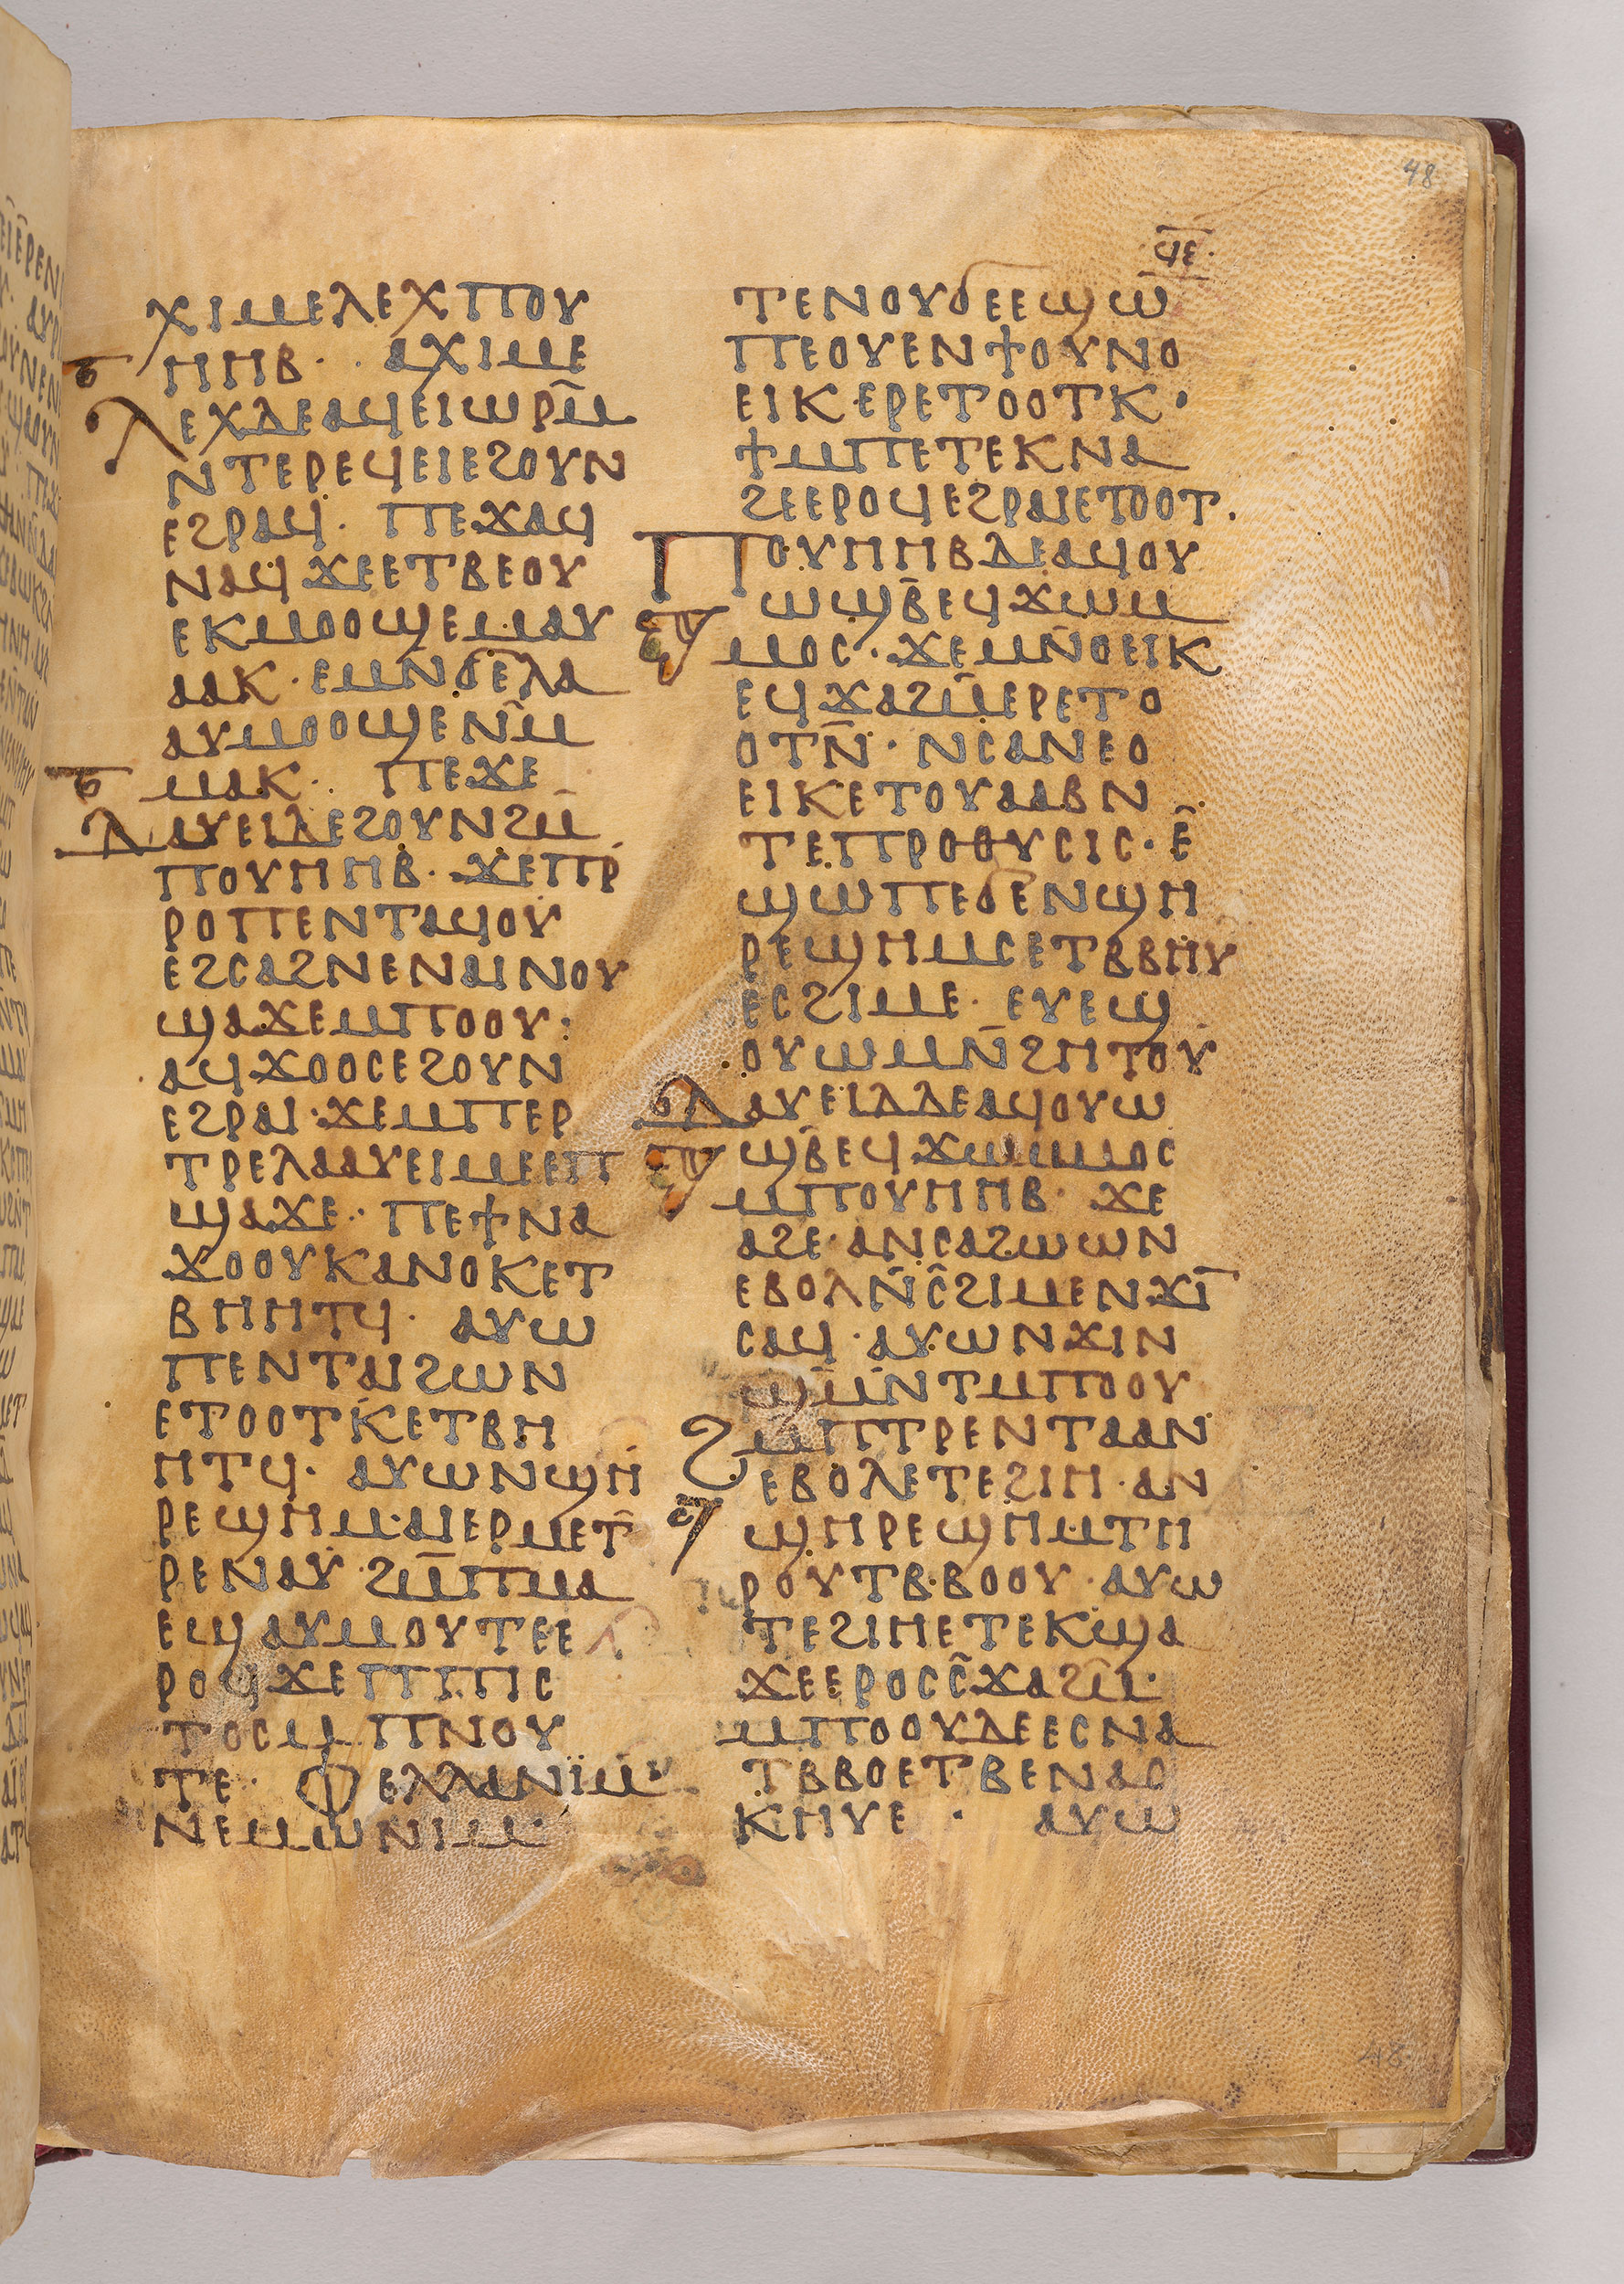 48
ϥ̅ⲉ̅·
ⲭⲓⲙⲉⲗⲉⲭⲡⲟⲩ
ⲏⲏⲃ· ⲁⲭⲓⲙⲉ
ⲗⲉⲭⲇⲉⲁϥⲉⲓⲱⲣⲙ̅
ⲛⲧⲉⲣⲉϥⲉⲓⲉϩⲟⲩⲛ
ⲉϩⲣⲁϥ· ⲡⲉϫⲁϥ
ⲛⲁϥϫⲉⲉⲧⲃⲉⲟⲩ
ⲉⲕⲙⲟⲟϣⲉⲙⲙⲁⲩ
ⲁⲁⲕ·ⲉⲙⲛ̅ϭⲉⲗⲁ
ⲁⲩⲙⲟⲟϣⲉⲛⲙ̅
ⲙⲁⲕ· ⲡⲉϫⲉ
ⲇⲁⲩⲉⲓⲇⲉϩⲟⲩⲛϩⲙ̅
ⲡⲟⲩⲏⲏⲃ· ϫⲉⲡⲣ̅
ⲣⲟⲡⲉⲛⲧⲁϥⲟⲩ
ⲉϩⲥⲁϩⲛⲉⲛⲁⲓⲛⲟⲩ
ϣⲁϫⲉⲙⲡⲟⲟⲩ:
ⲁϥϫⲟⲟⲥⲉϩⲟⲩⲛ
ⲉϩⲣⲁⲓ·ϫⲉⲙⲡⲉⲣ
ⲧⲣⲉⲗⲁⲁⲩⲉⲓⲙⲉⲉⲡ
ϣⲁϫⲉ· ⲡⲉϯⲛⲁ
ϫⲟⲟⲩⲕⲁⲛⲟⲕⲉⲧ
ⲃⲏⲏⲧϥ· ⲁⲩⲱ
ⲡⲉⲛⲧⲁⲓϩⲱⲛ
ⲉⲧⲟⲟⲧⲕⲉⲧⲃⲏ
ⲏⲧϥ· ⲁⲩⲱⲛϣⲏ
ⲣⲉϣⲏⲙ·ⲁⲓⲉⲣⲙⲉⲧ̅
ⲣⲉⲛⲁⲩ·ϩⲙ̅ⲡⲙⲁ
ⲉϣⲁⲩⲙⲟⲩⲧⲉⲉ
ⲣⲟϥϫⲉⲡⲡⲓⲥ
ⲧⲟⲥⲙⲡⲛⲟⲩ
ⲧⲉ· ⲫⲉⲗⲗⲁⲛⲓⲙ·
ⲛⲉⲙⲱⲛⲓⲙ·
ⲧⲉⲛⲟⲩϭⲉⲉϣⲱ
ⲡⲉⲟⲩⲉⲛϯⲟⲩⲛⲟ
ⲉⲓⲕⲉⲣⲉⲧⲟⲟⲧⲕ·
ϯⲙⲡⲉⲧⲉⲕⲛⲁ
ϩⲉⲉⲣⲟϥⲉϩⲣⲁⲓⲉⲧⲟⲟⲧ·
ⲡⲟⲩⲏⲏⲃⲇⲉⲁϥⲟⲩ
ⲱϣⲃ̅ⲉϥϫⲱⲙ
ⲙⲟⲥ·ϫⲉⲙⲛ̅ⲟⲉⲓⲕ
ⲉϥϫⲁϩⲙ̅ⲉⲣⲉⲧⲟ
ⲟⲧⲛ̅· ⲛⲥⲁⲛⲉⲟ
ⲉⲓⲕⲉⲧⲟⲩⲁⲁⲃⲛ
ⲧⲉⲡⲣⲟⲑⲩⲥⲓⲥ·ⲉ̅
ϣⲱⲡⲉϭⲉⲛϣⲏ
ⲣⲉϣⲏⲙⲥⲉⲧⲃⲃⲏⲩ
ⲉⲥϩⲓⲙⲉ· ⲉⲩⲉϣ
ⲟⲩⲱⲙⲛ̅ϩⲏⲧⲟⲩ
ⲇⲁⲩⲉⲓⲇⲇⲉⲁϥⲟⲩⲱ
ϣⲃ̅ⲉϥϫⲱⲙⲙⲟⲥ
ⲙⲡⲟⲩⲏⲏⲃ· ϫⲉ
ⲁϩⲉ·ⲁⲛⲥⲁϩⲱⲱⲛ
ⲉⲃⲟⲗⲛ̅ⲥ̅ϩⲓⲙⲉⲛϫⲓ̅
ⲥⲁϥ·ⲁⲩⲱⲛϫⲓⲛ
ϣⲙ̅ⲛ̅ⲧⲙⲡⲟⲟⲩ
ϩⲙⲡⲧⲣⲉⲛⲧⲁⲁⲛ
ⲉⲃⲟⲗⲉⲧⲉϩⲓⲏ·ⲁⲛ
ϣⲏⲣⲉϣⲏⲙⲧⲏ
ⲣⲟⲩⲧⲃⲃⲟⲟⲩ·ⲁⲩⲱ
ⲧⲉϩⲓⲏⲉⲧⲉⲕϣⲁ
ϫⲉⲉⲣⲟⲥⲥ̅ϫⲁϩⲙ̅·
ⲙⲡⲟⲟⲩⲇⲉⲉⲥⲛⲁ
ⲧⲃⲃⲟⲉⲧⲃⲉⲛⲁⲥ
ⲕⲏⲩⲉ · ⲁⲩⲱ
48